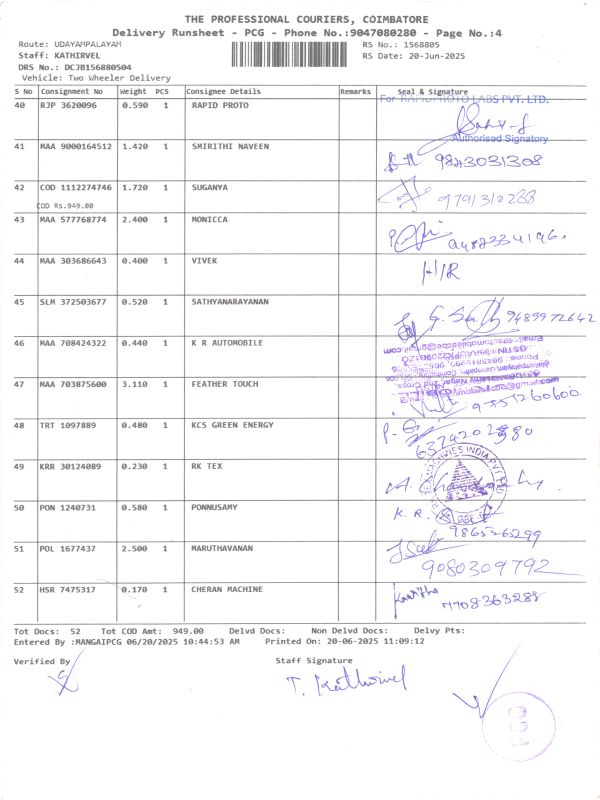 THE PROFESSIONAL COURIERS, COIMBATORE
Delivery Runsheet - PCG - Phone No.:9047080280 - Page No.:4
Route: UDAYAMPALAYAM RS No.: 1568805
Staff: KATHIRVEL RS Date: 20-Jun-2025
DRS No.: DCJB156880504
Vehicle: Two Wheeler Delivery
S No Consignment No Weight PCS Consignee Details Remarks Seal & Signature
40 RJP 3620096 0.590 1 RAPID PROTO For RAPID PROTO LABS PVT. LTD.
Authorised Signatory
41 MAA 9000164512 1.420 1 SMIRITHI NAVEEN 9843031308
42 COD 1112274746 1.720 1 SUGANYA 9791310288
COD Rs.949.00
43 MAA 577768774 2.400 1 MONICCA
44 MAA 303686643 0.400 1 VIVEK H/R
45 SLM 372503677 0.520 1 SATHYANARAYANAN 9489972642
46 MAA 708424322 0.440 1 K R AUTOMOBILE
47 MAA 703875600 3.110 1 FEATHER TOUCH 9751260600
48 TRT 1097889 0.480 1 KCS GREEN ENERGY
49 KRR 30124089 0.230 1 RK TEX
50 PON 1240731 0.580 1 PONNUSAMY K.R.
51 POL 1677437 2.500 1 MARUTHAVANAN 9080309792
52 HSR 7475317 0.170 1 CHERAN MACHINE 7708363288
Tot Docs: 52 Tot COD Amt: 949.00 Delvd Docs: Non Delvd Docs: Delvy Pts:
Entered By :MANGAIPCG 06/20/2025 10:44:53 AM Printed On: 20-06-2025 11:09:12
Verified By Staff Signature
T. Kathirvel